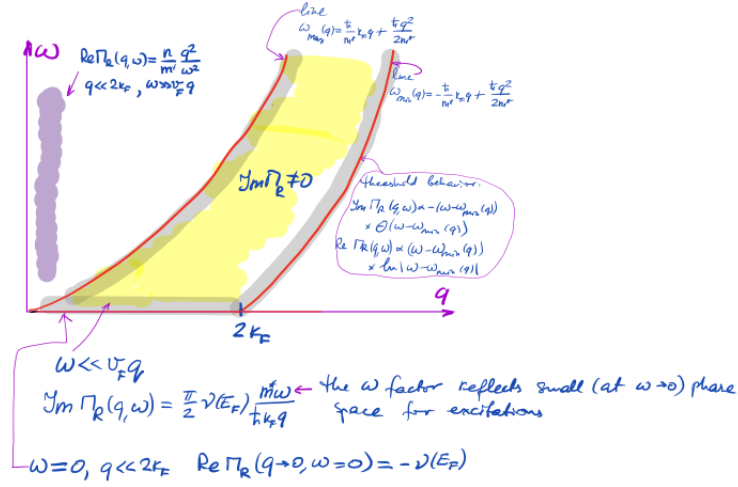 line
ω_max(q) = ħ/m* k_F q + ħq²/2m*
ω
Re Π_R(q,ω) = n/m* q²/ω²
q << 2k_F, ω >> v_F q
line
ω_min(q) = -ħ/m* k_F q + ħq²/2m*
Im Π_R ≠ 0
threshold behavior:
Im Π_R(q,ω) ∝ -(ω-ω_min(q))
× Θ(ω-ω_min(q))
Re Π_R(q,ω) ∝ (ω-ω_min(q))
× ln|ω-ω_min(q)|
q
2k_F
ω << v_F q
Im Π_R(q,ω) = π/2 ν(E_F) m*ω/ħk_F q ← the ω factor reflects small (at ω→0) phase
space for excitations
ω=0, q << 2k_F Re Π_R(q→0, ω=0) = -ν(E_F)